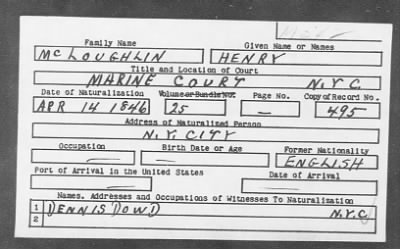 Family Name Given Name or Names
McLOUGHLIN HENRY
Title and Location of Court
MARINE COURT N.Y.C.
Date of Naturalization Volume or Bundle No. Page No. Copy of Record No.
APR 14 1846 25 — 495
Address of Naturalized Person
N.Y. CITY
Occupation Birth Date or Age Former Nationality
— — ENGLISH
Port of Arrival in the United States Date of Arrival
— —
Names, Addresses and Occupations of Witnesses To Naturalization
1 DENNIS DOWD N.Y.C.
2